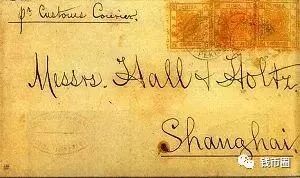 pr Customs Courier.
Messrs. Hall & Holtz.
Shanghai.
钱币圈